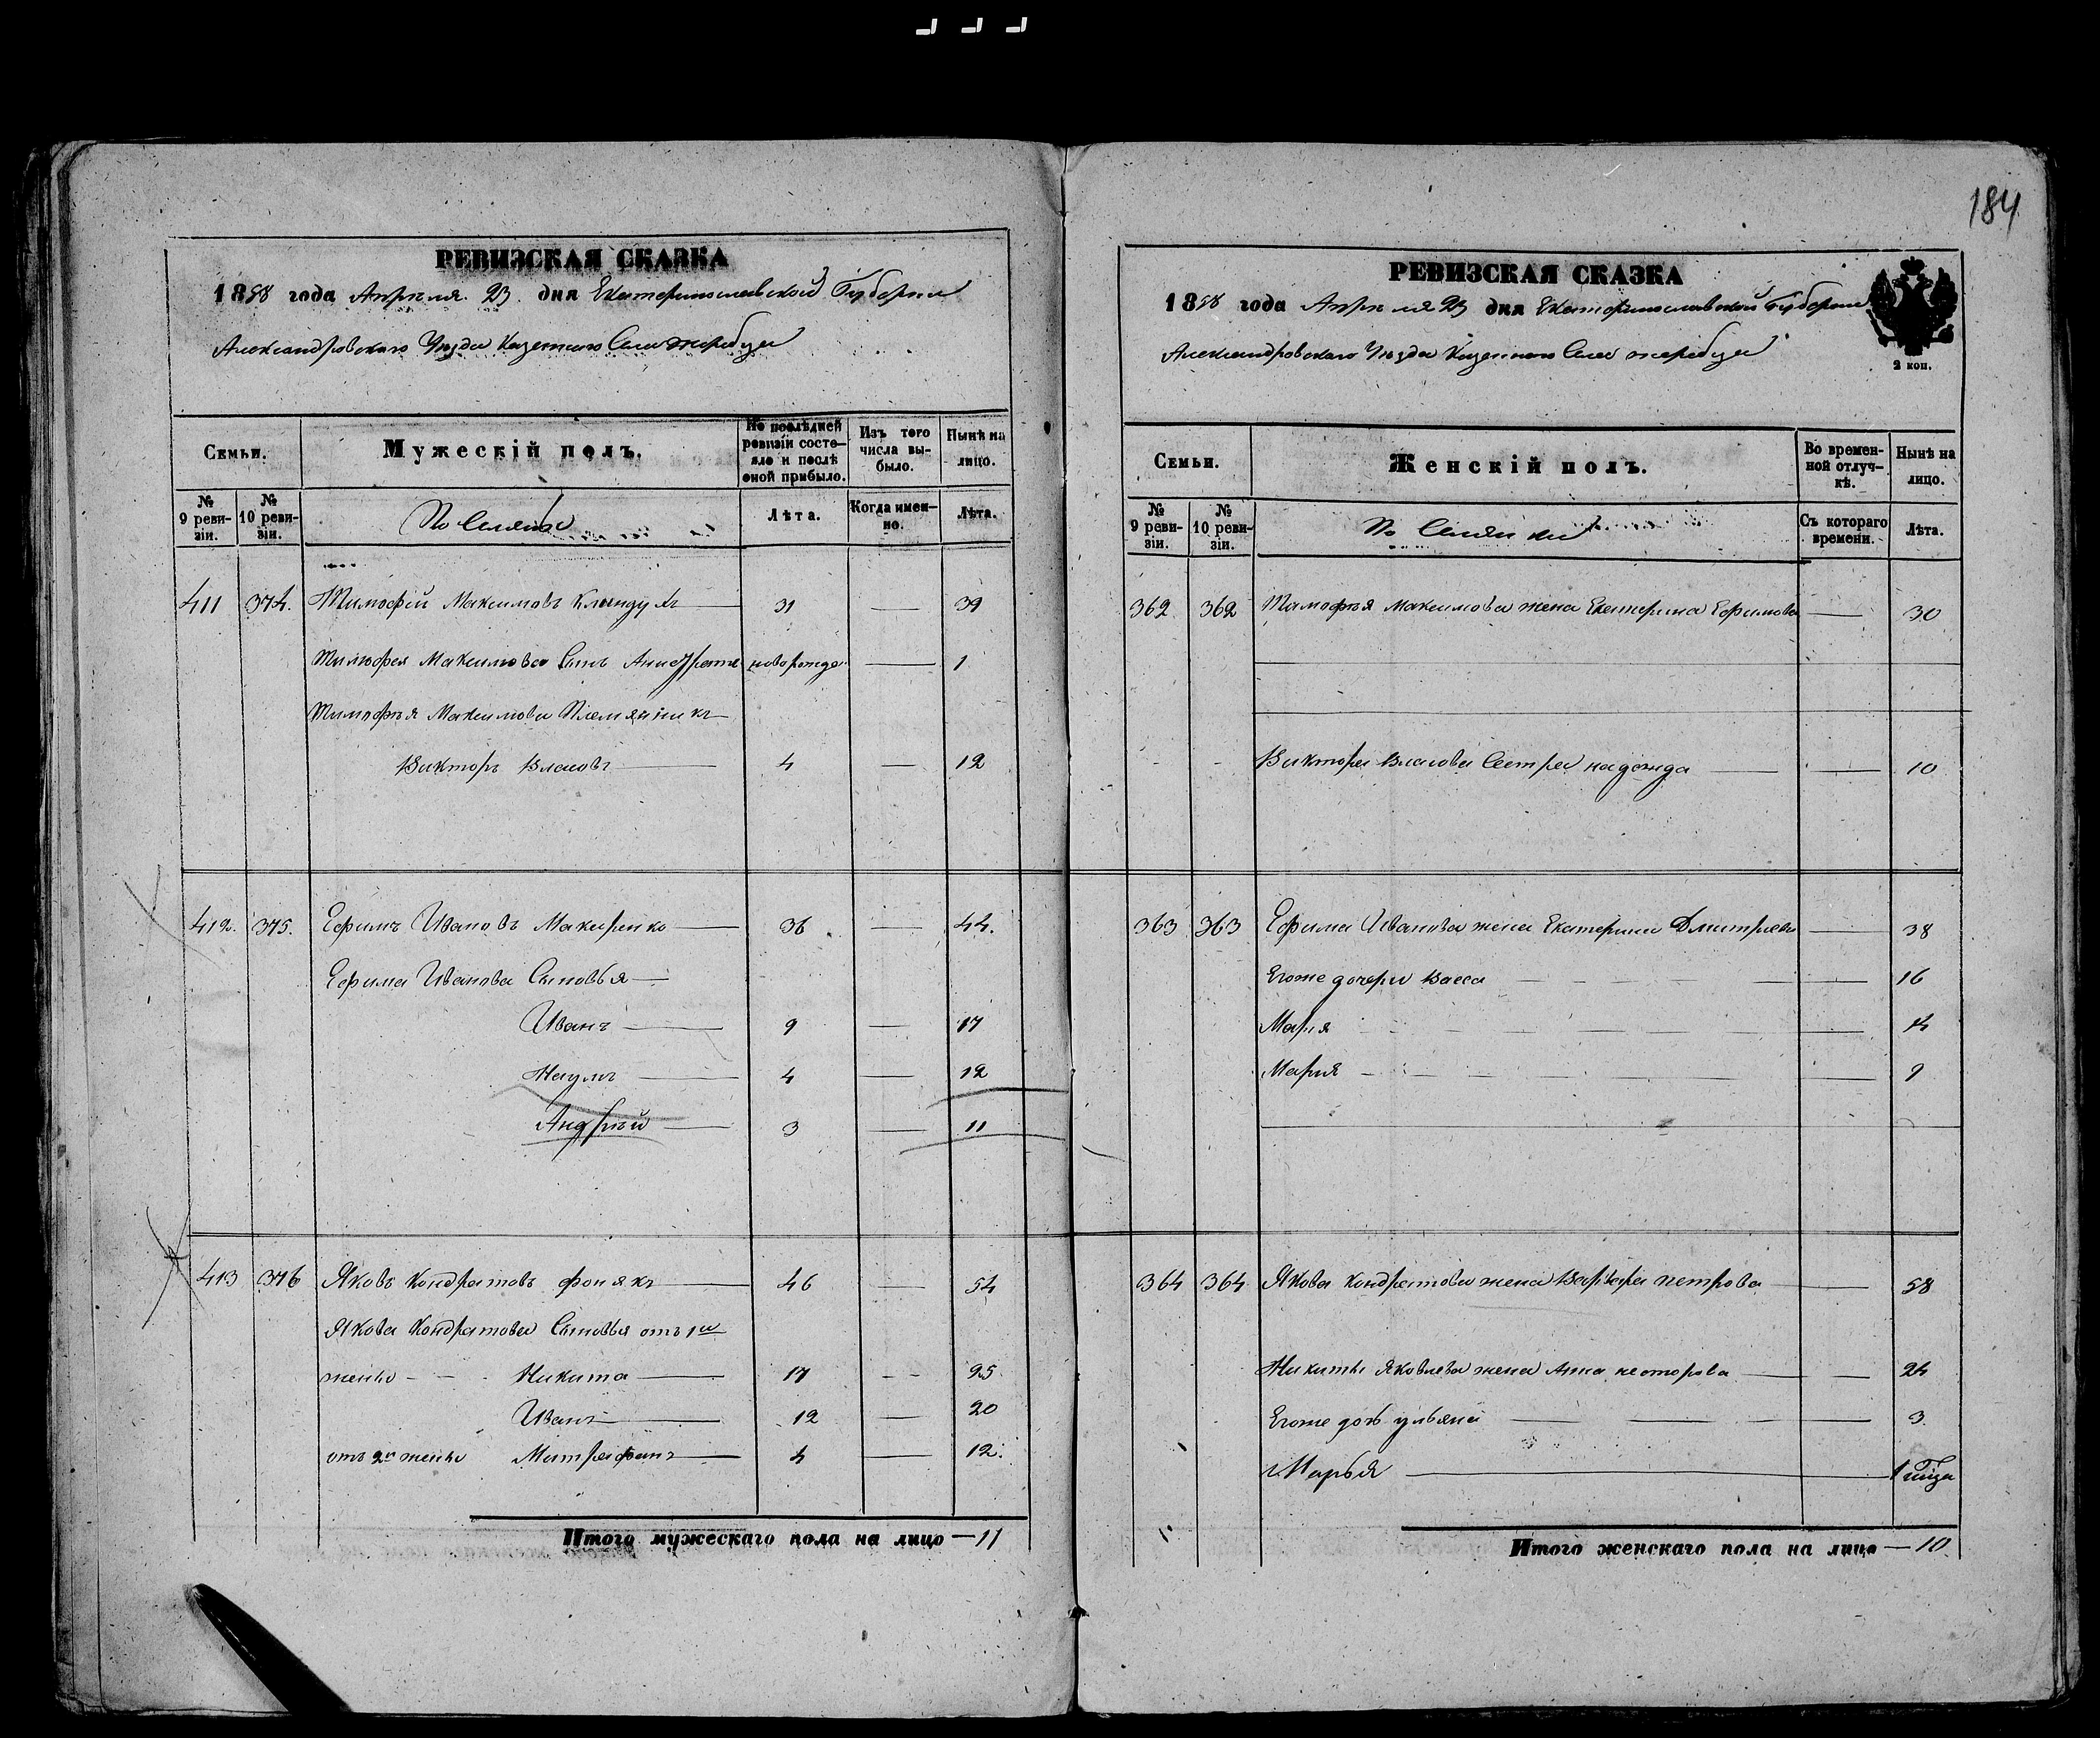 184
РЕВИЗСКАЯ СКАЗКА
1858 года Апреля 23 дня Екатеринославской Губернии
Александровского Уезда Казенного Села жеребца
Семьи.
Мужескій полъ.
По послѣдней ревизіи состояло и послѣ оной прибыло.
Изъ того числа выбыло.
Нынѣ на лицо.
№ 9 ревизіи.
№ 10 ревизіи.
Лѣта.
Когда именно.
Лѣта.
411 374. Тимофей Максимовъ 31 — 39
Тимофея Максимова Сынъ новорожде — 1
Тимофея Максимова Племянникъ
Викторъ Власовъ 4 — 12
412. 375. Ефимъ Ивановъ Макаренко 36 — 44.
Ефима Иванова Сыновья
Иванъ 9 — 17
Наумъ 4 — 12
Андрей 3 — 11
413 376 Яковъ Кондратовъ фонякъ 46 — 54
Якова Кондратова Сыновья отъ 1й
жены Никита 17 — 25
Иванъ 12 — 20
отъ 2й жены Митрофанъ 4 — 12.
Итого мужескаго пола на лицо — 11
РЕВИЗСКАЯ СКАЗКА
1858 года Апреля 23 дня Екатеринославской Губернии
Александровского Уезда Казенного Села жеребца
2 коп.
Семьи.
Женскій полъ.
Во временной отлучкѣ.
Нынѣ на лицо.
№ 9 ревизіи.
№ 10 ревизіи.
Съ котораго времени.
Лѣта.
362 362 Тимофея Максимова жена Екатерина Ефимова — 30
Виктора Власова Сестра надежда — 10
363 363 Ефима Иванова жена Екатерина Дмитриева — 38
Егоже дочери Васса — 16
Мария — 14
Мария — 9
364 364 Якова Кондратова жена Варвара петрова — 58
Никиты Яковлева жена Анна несторова — 24
Егоже дочь ульяна — 3
Марья — 1
Итого женскаго пола на лицо — 10.